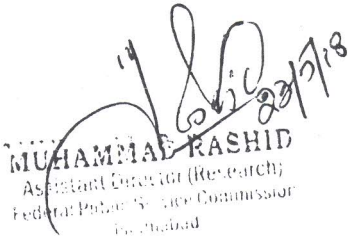 23/7/18
MUHAMMAD RASHID
Assistant Director (Research)
Federal Public Service Commission
Islamabad